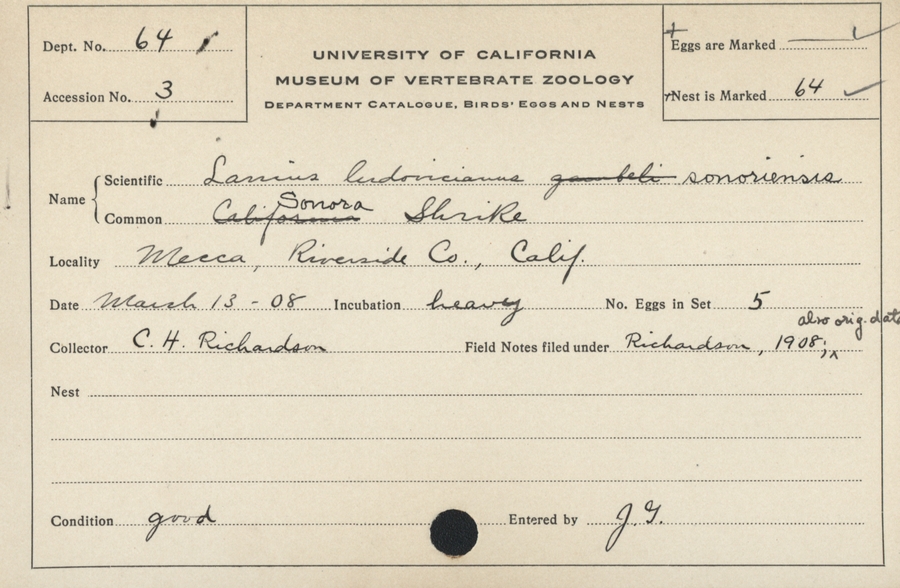 Dept. No. 64
Accession No. 3
UNIVERSITY OF CALIFORNIA
MUSEUM OF VERTEBRATE ZOOLOGY
DEPARTMENT CATALOGUE, BIRDS' EGGS AND NESTS
Eggs are Marked
Nest is Marked 64
Name
Scientific Lanius ludovicianus gambeli sonoriensis
Sonora
Common California Shrike
Locality Mecca, Riverside Co., Calif.
Date March 13 - 08 Incubation heavy No. Eggs in Set 5
also orig. data
Collector C. H. Richardson Field Notes filed under Richardson, 1908;
Nest
Condition good Entered by J. G.